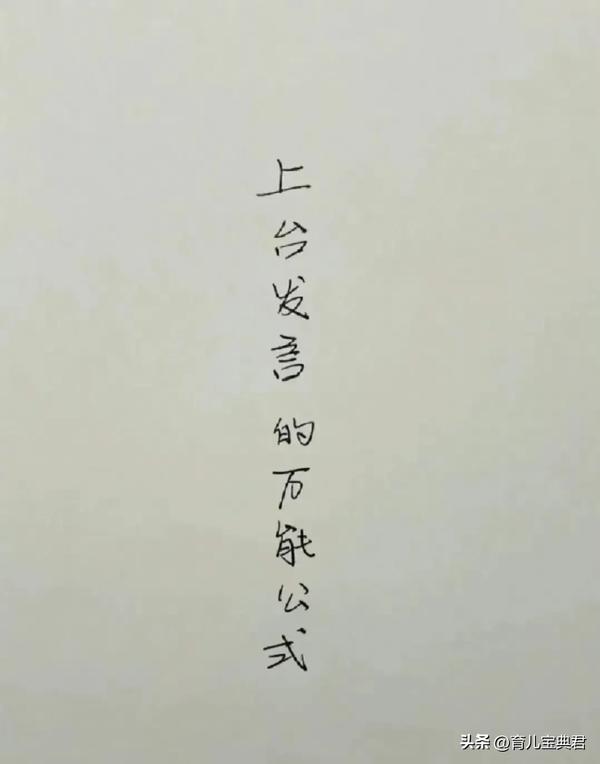 上台发言的万能公式
头条@育儿宝典君